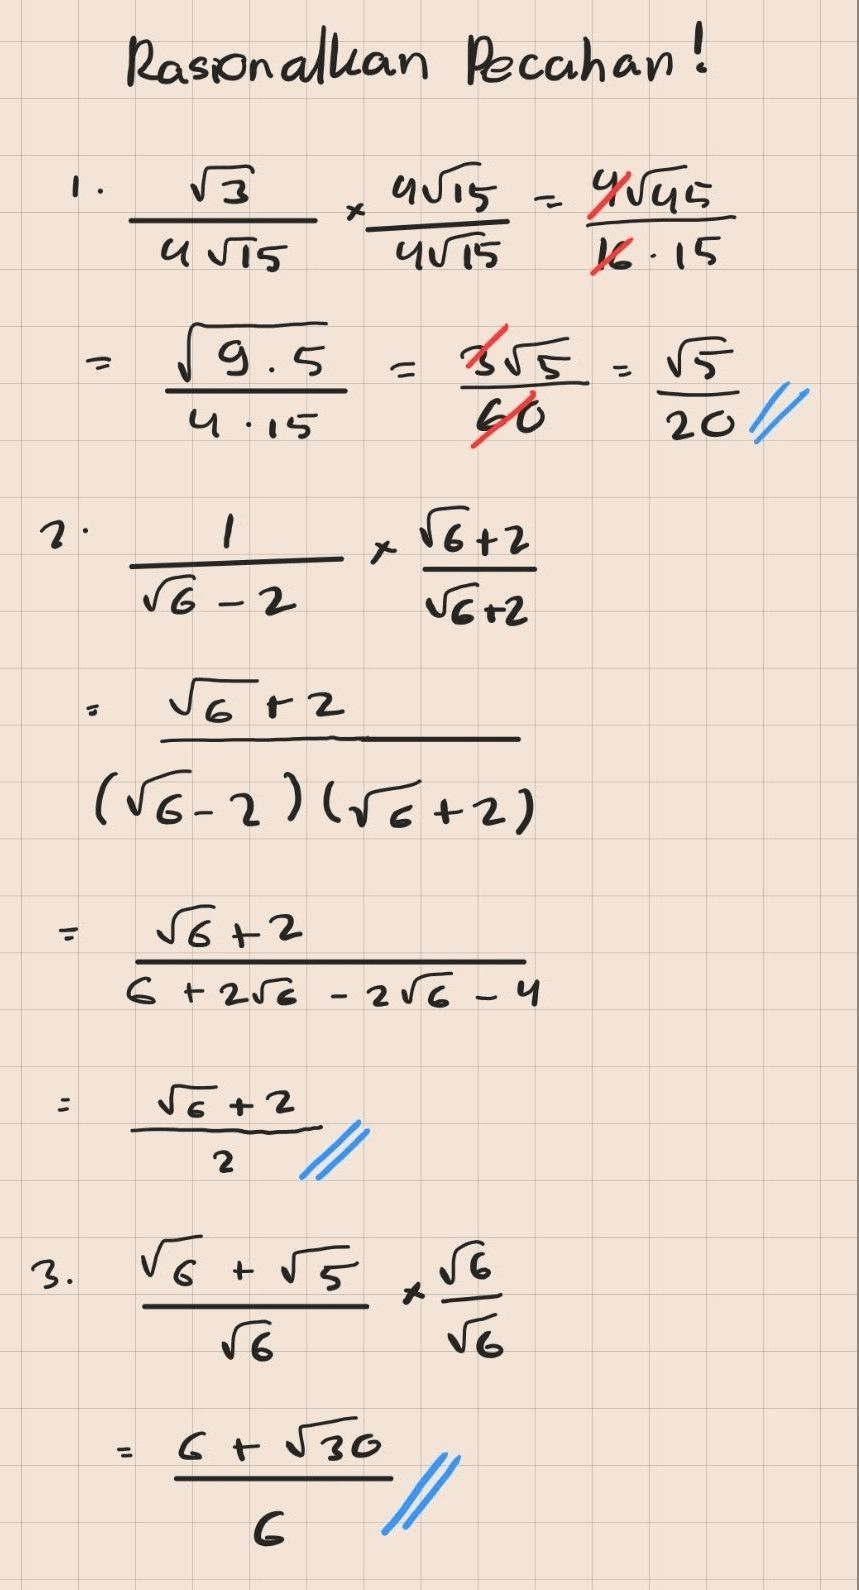 Rasionalkan Pecahan!
1. √3/(4√15) × 4√15/(4√15) = 4√45/(16 · 15)
= √(9 . 5)/(4 · 15) = 3√5/60 = √5/20
2. 1/(√6 - 2) × (√6+2)/(√6+2)
= (√6 + 2)/((√6 - 2)(√6 + 2))
= (√6 + 2)/(6 + 2√6 - 2√6 - 4)
= (√6 + 2)/2
3. (√6 + √5)/√6 × √6/√6
= (6 + √30)/6